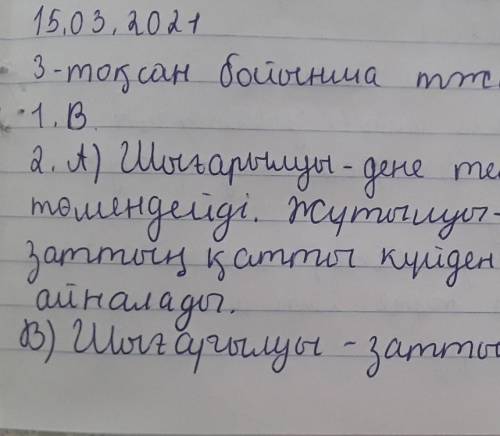 15.03.2021
3-тоқсан бойынша тж
1. В
2. А) Шығарылуы - дене те
төмендейді. Жұтылуы -
заттың қатты күйден
айналады.
В) Шығарылуы - затты